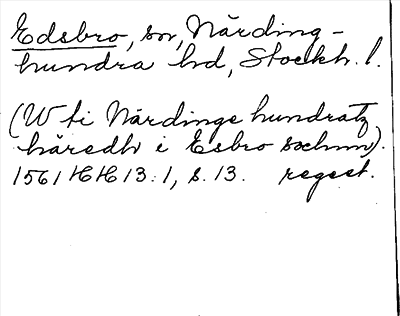 Edsbro, sn, Närding-
hundra hd, Stockh. l.
(W ti Närdinge hundratz
häredh i Esbro sochnn).
1561 HH 13:1, s. 13. regest.